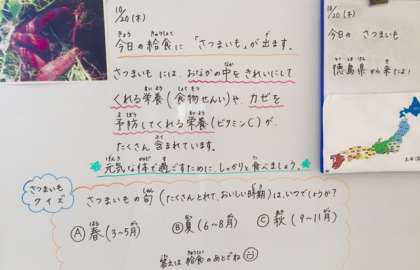 10/20(木)
今日の給食に「さつまいも」が出ます。
さつまいもには、おなかの中をきれいにして
くれる栄養(食物せんい)や、カゼを
予防してくれる栄養(ビタミンC)が、
たくさん含まれています。
元気な体で過ごすために、しっかりと食べましょう。
さつまいも
クイズ
さつまいもの旬(たくさんとれて、おいしい時期)は、いつでしょうか?
Ⓐ春(3~5月) Ⓑ夏(6~8月) Ⓒ秋(9~11月)
答えは給食のあとでね
10/20(木)
今日の さつまいも
徳島県から来たよ!